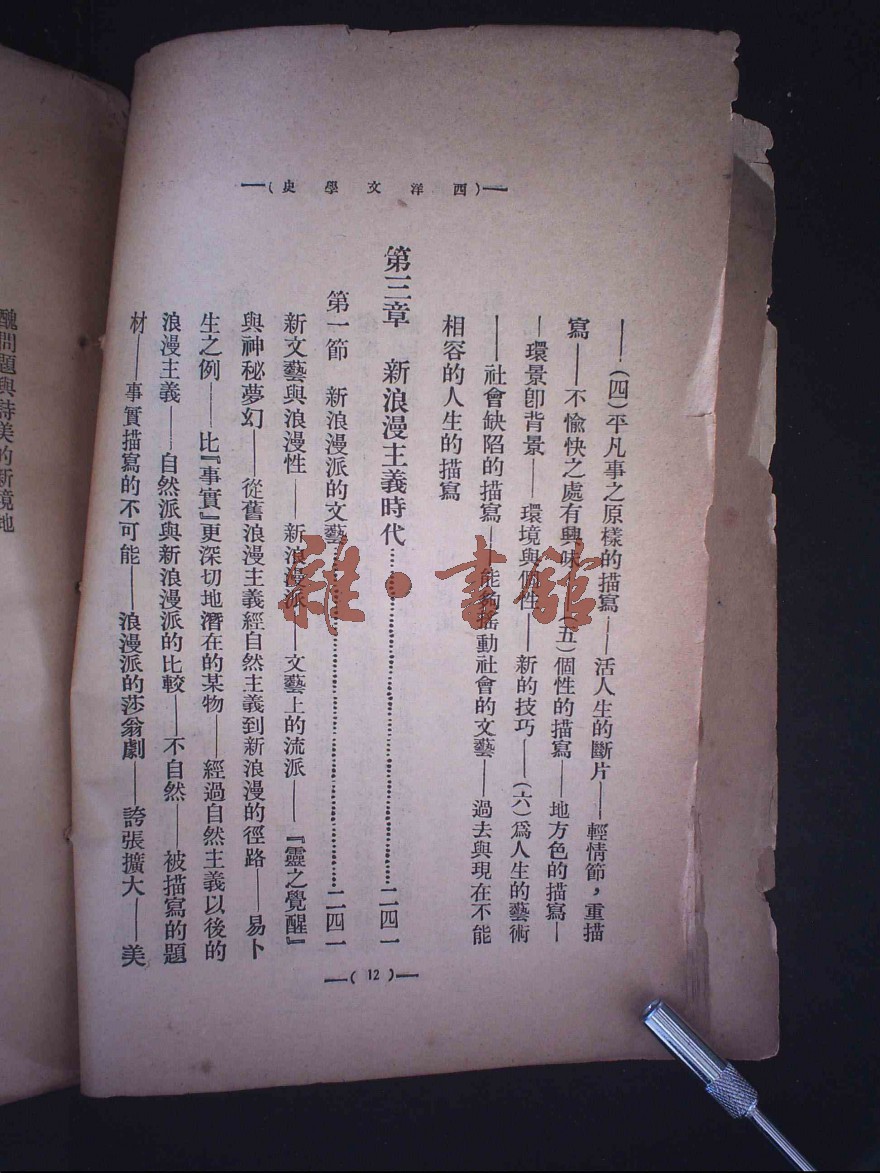 史學文洋西
——(四)平凡事之原樣的描寫——活人生的斷片——輕情節，重描
寫——不愉快之處有興味——(五)個性的描寫——地方色的描寫—
—環景卽背景——環境與個性——新的技巧——(六)爲人生的藝術
——社會缺陷的描寫——能夠搖動社會的文藝——過去與現在不能
相容的人生的描寫
第三章 新浪漫主義時代…………二四一
第一節 新浪漫派的文藝…………二四一
新文藝與浪漫性——新浪漫派——文藝上的流派——『靈之覺醒』
與神秘夢幻——從舊浪漫主義經自然主義到新浪漫的徑路——易卜
生之例——比『事實』更深切地潛在的某物——經過自然主義以後的
浪漫主義——自然派與新浪漫派的比較——不自然——被描寫的題
材——事實描寫的不可能——浪漫派的莎翁劇——誇張擴大——美
—( 12 )—
醜問題與詩美的新境地
雜·書館